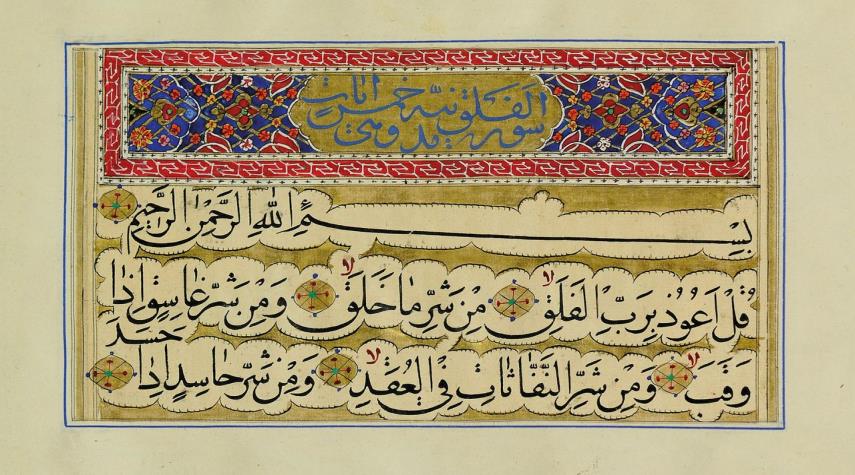 سورة الفلق مدنية وهي خمس آيات
بِسْمِ اللهِ الرَّحْمٰنِ الرَّحِيمِ
قُلْ اَعُوذُ بِرَبِّ الفَلَقِ لا مِنْ شَرِّ مَا خَلَقَ لا وَمِنْ شَرِّ غَاسِقٍ اِذَا
وَقَبَ لا وَمِنْ شَرِّ النَّفَّاثَاتِ فِي الْعُقَدِ لا وَمِنْ شَرِّ حَاسِدٍ اِذَا حَسَدَ